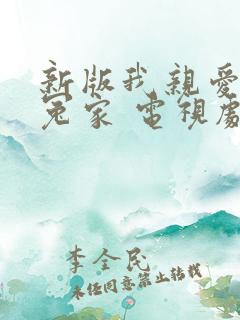 新版我親愛
冤家 電視處
李全民
未任同意禁止转載